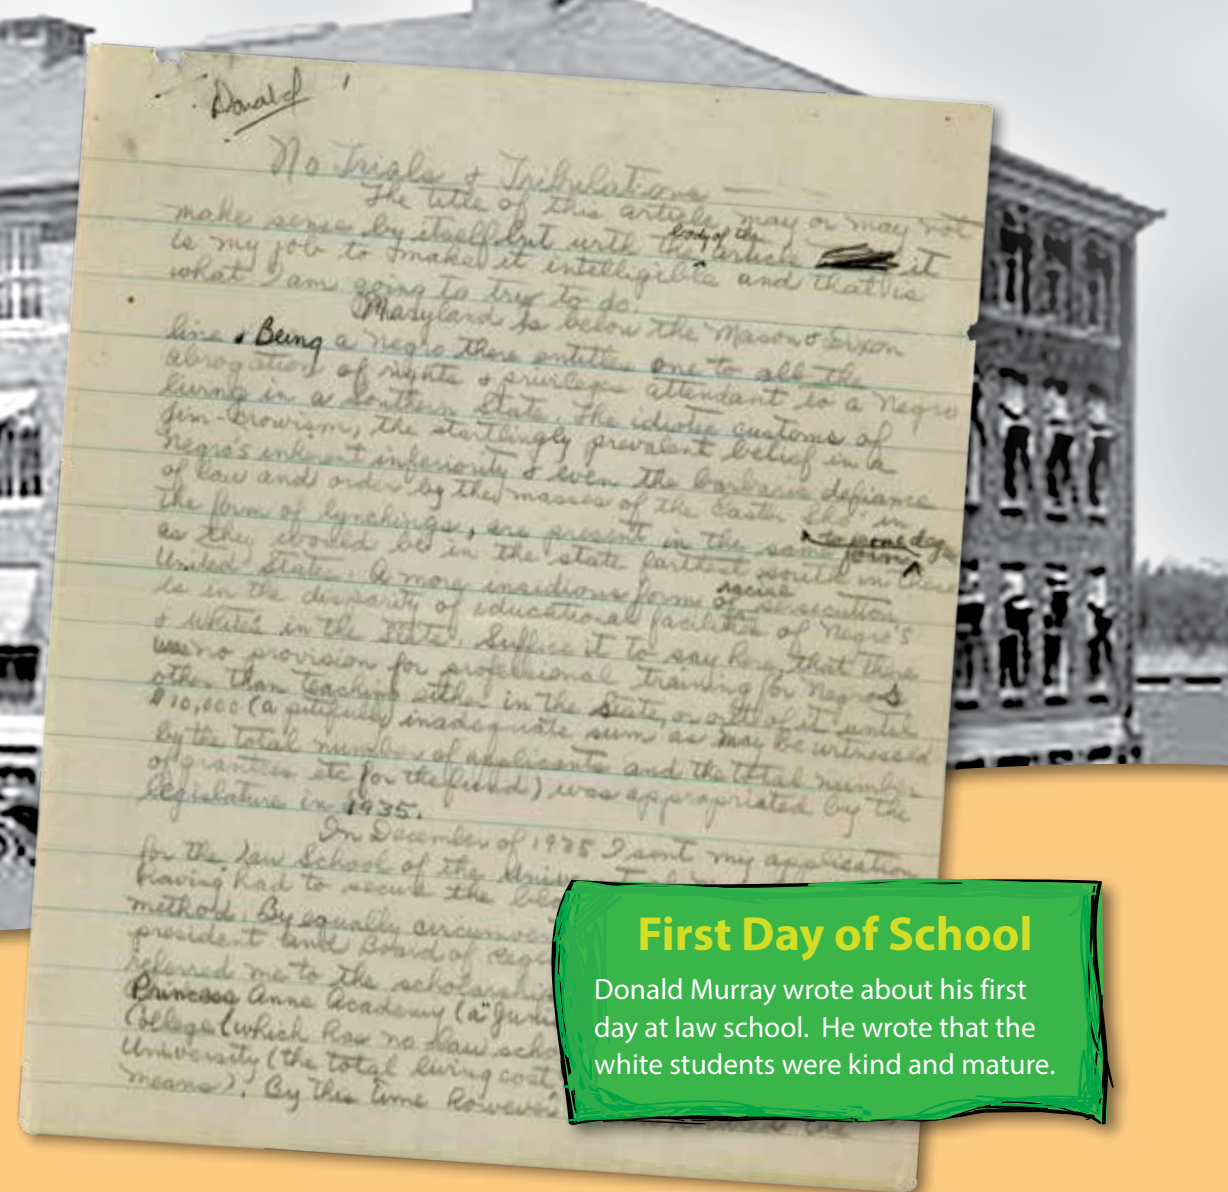 Donald
No Trials & Tribulations
The title of this article, may or may not
make sense by itself but with the body of the article it
is my job to make it intelligible and that is
what I am going to try to do.
Maryland is below the Mason & Dixon
line. Being a Negro there entitles one to all the
abrogation of rights & privileges attendant to a Negro
living in a Southern State. The idiotic customs of
Jim-Crowism, the startlingly prevalent belief in a
Negro's inherent inferiority & even the barbaric defiance
of law and order by the masses of the Eastern Sho' in
the form of lynchings, are present in the same form
as they would be in the state farthest south in these
United States. A more insidious form of racial persecution
is in the disparity of educational facilities of Negro's
& whites in the State. Suffice it to say here, that there
was no provision for professional training for Negros
other than teaching either in the State, or out of it until
$10,000 (a pitifully inadequate sum as may be witnessed
by the total number of applicants and the total number
of grantees etc for the fund) was appropriated by the
legislature in 1935.
In December of 1935 I sent my application
for the Law School of the
having had to secure the
method. By equally
president and Board of
referred me to the scholarship
Princess Anne Academy (a "Juni
College (which has no law scho
University (the total living cost
means). By this time however
First Day of School
Donald Murray wrote about his first
day at law school. He wrote that the
white students were kind and mature.